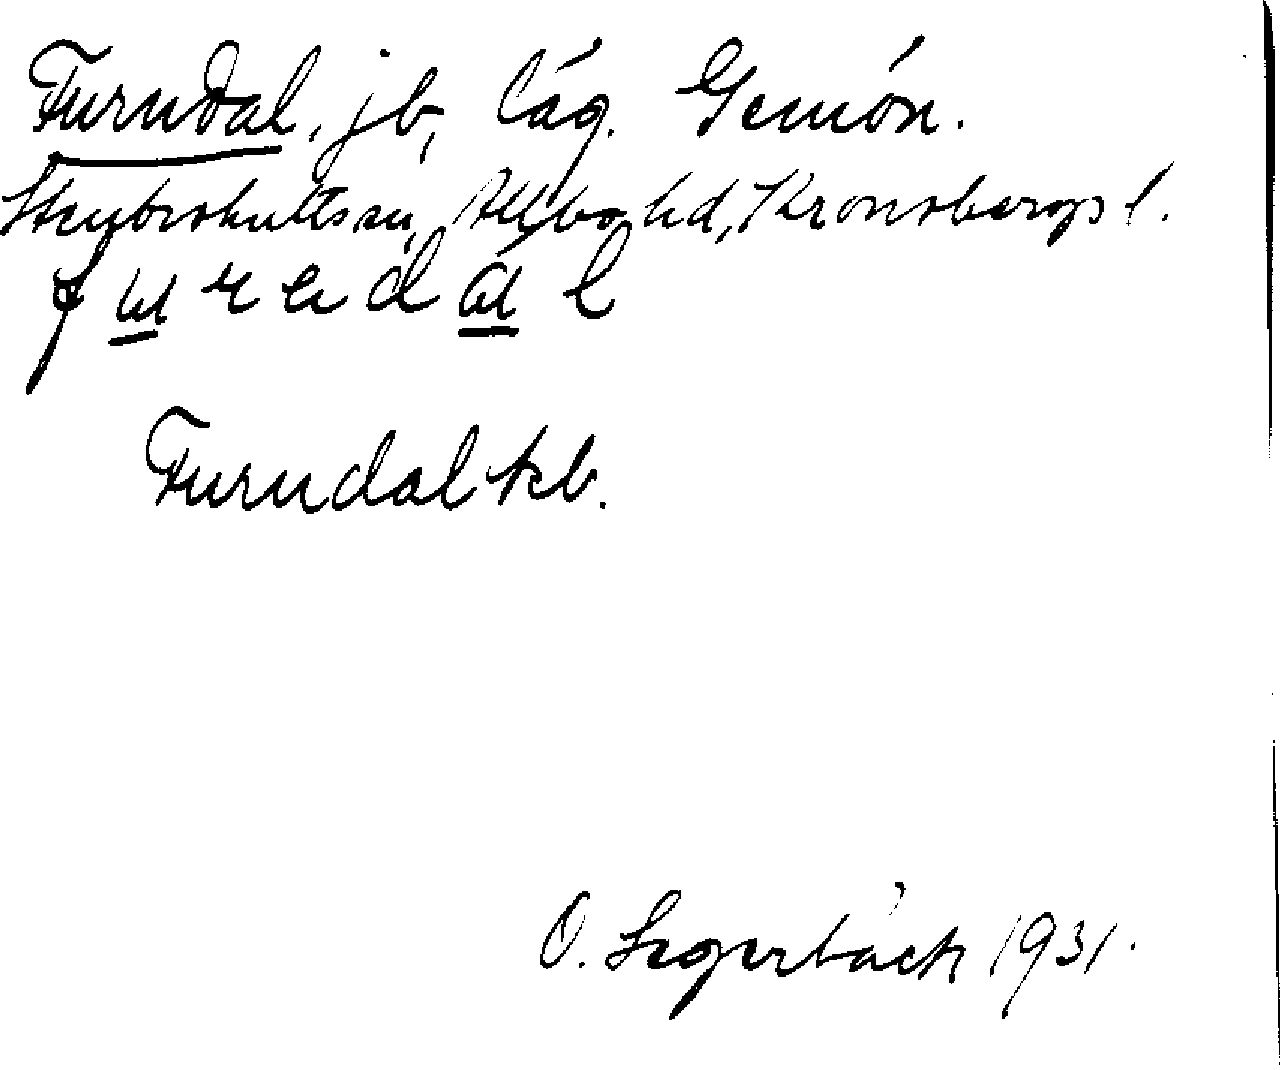 Furudal, jb, läg. Gemön.
Stenbrohults sn, Allbo hd, Kronobergs l.
f u r e d a l
Furudal kb.
O. Segerbäck 1931.